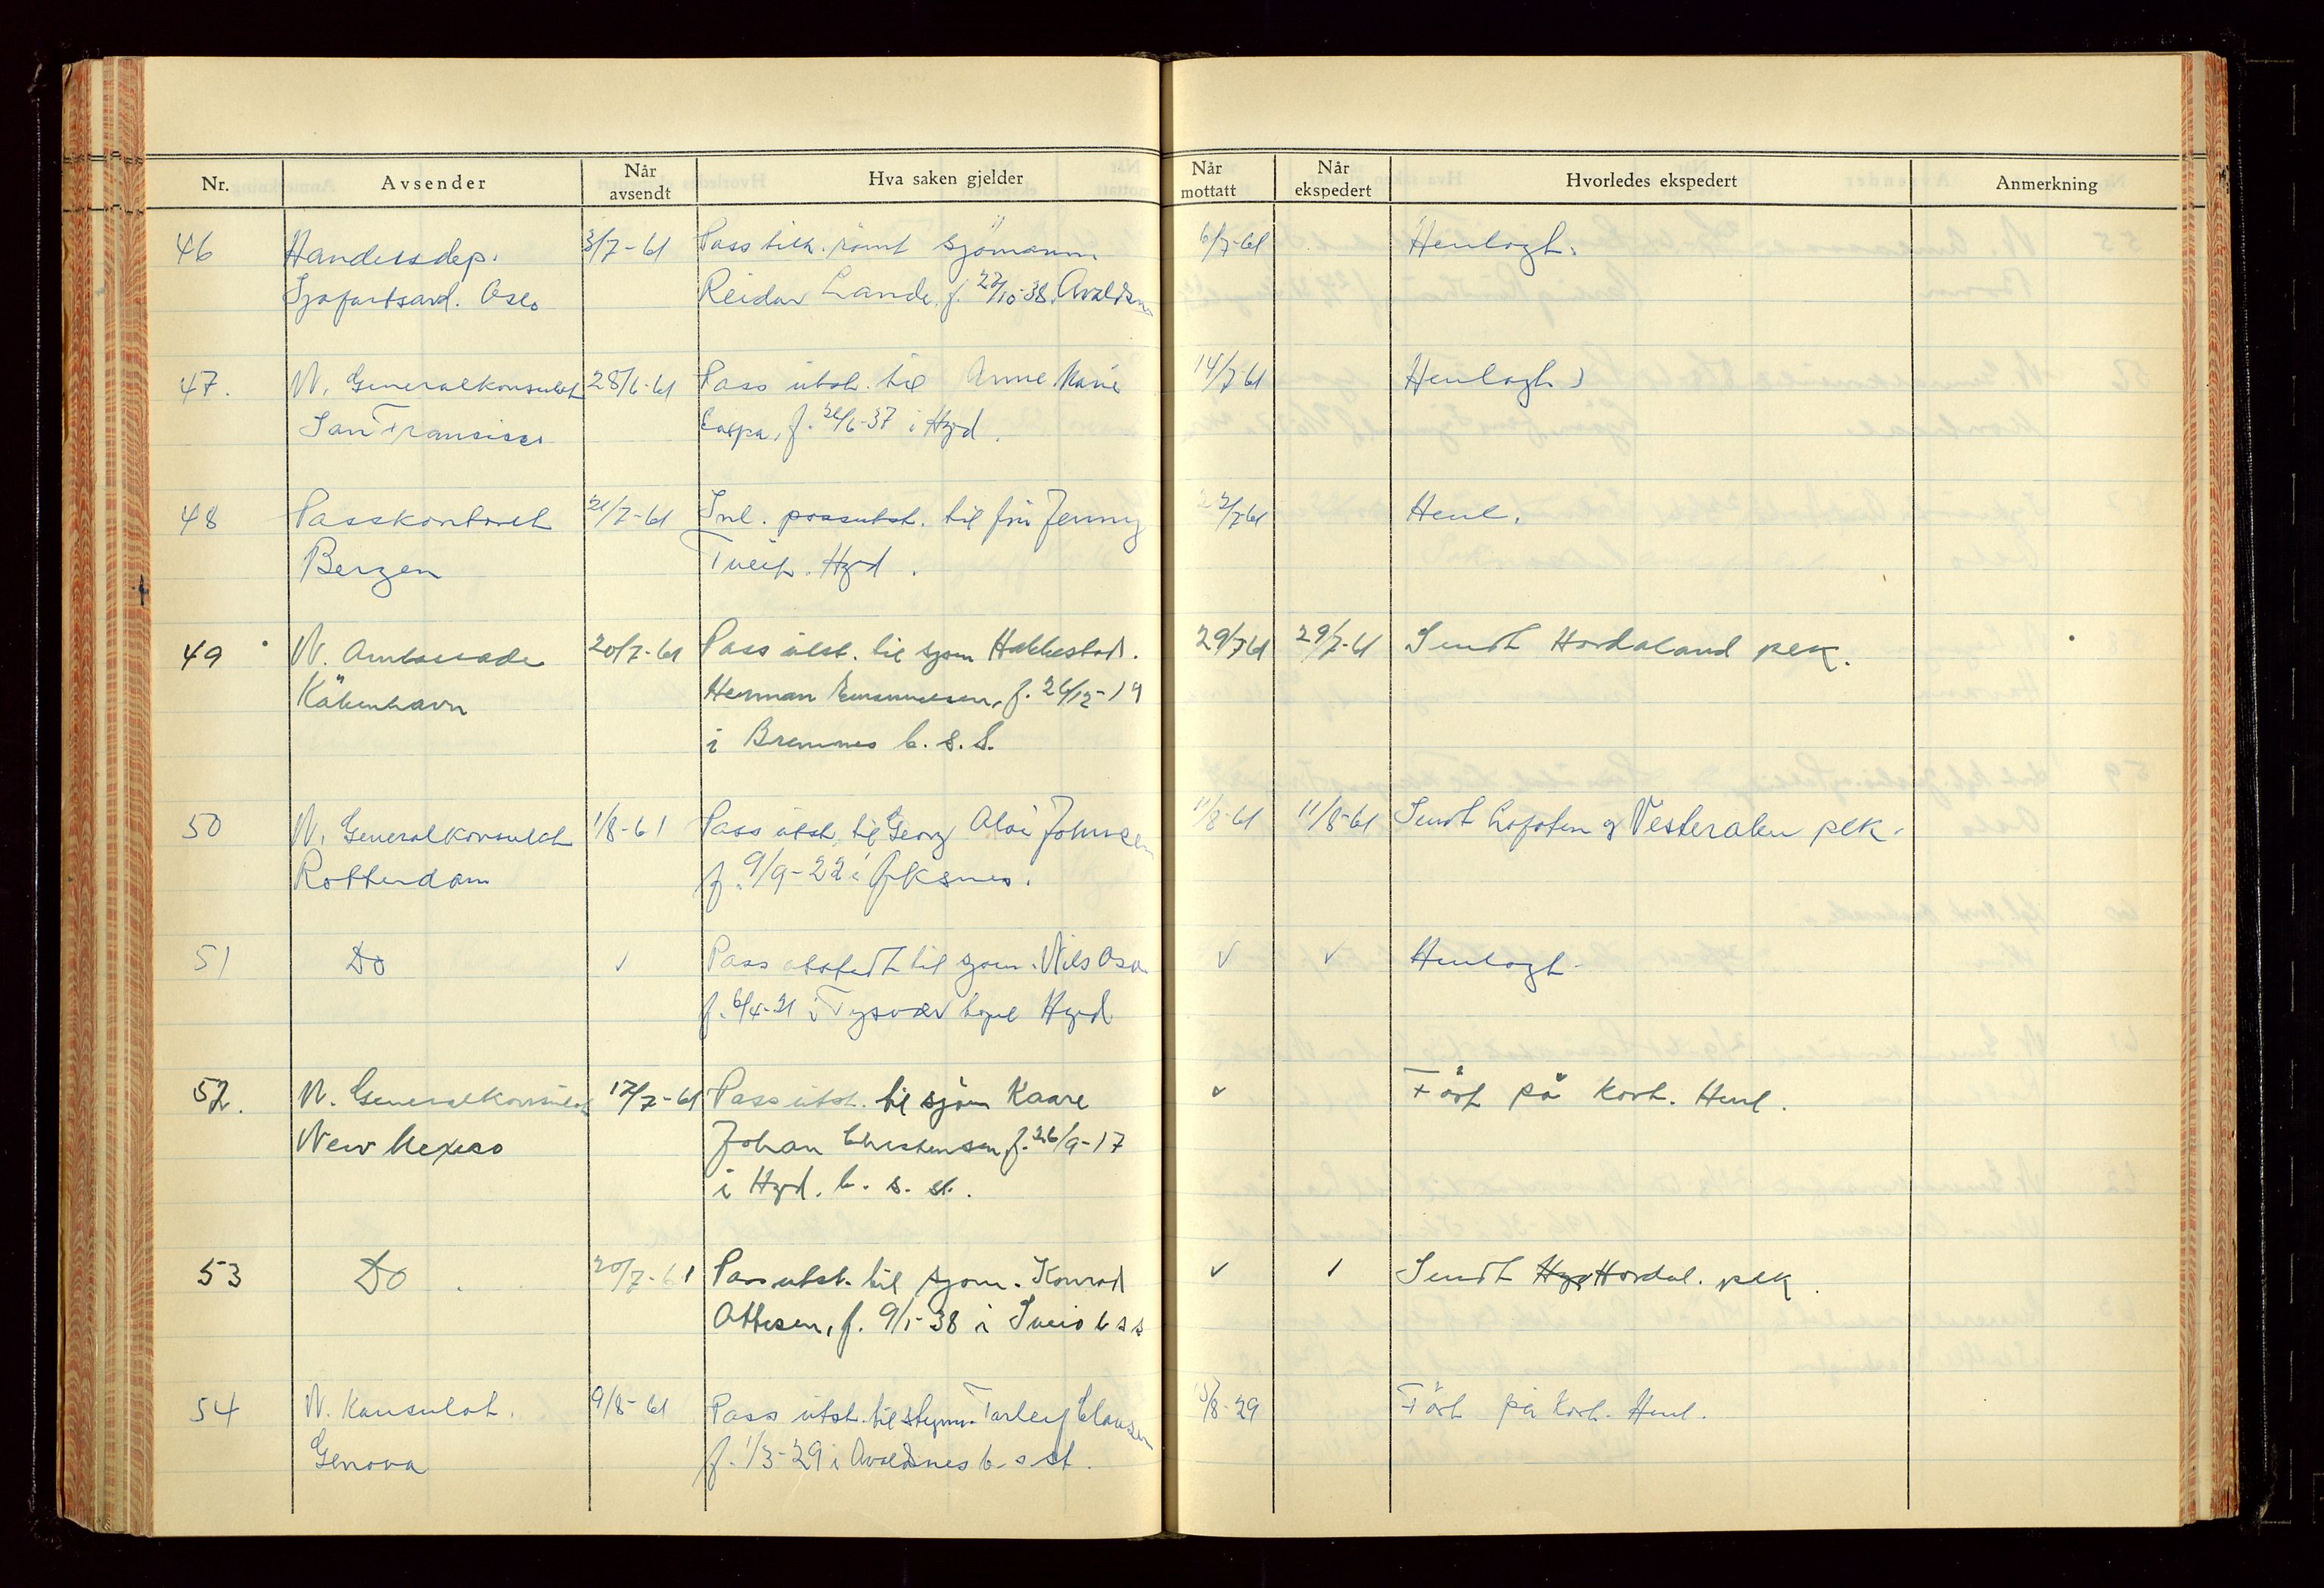 Nr. Avsender Når avsendt Hva saken gjelder Når mottatt Når ekspedert Hvorledes ekspedert Anmerkning
46 Handelsdep. 3/7-61 Pass tilh. rømt sjömann 6/7-61 Henlagt.
Sjøfartsavd. Oslo Reidar Lande, f. 22/10-38, Avaldsn
47. N. Generalkonsulat 28/6-61 Pass utst. til Anne Marie 14/7-61 Henlagt
San Fransisco f. 26/6-37 i Hgd.
48 Passkontoret 21/7-61 Inl. passutst. til fru Jenny 22/7-61 Henl.
Bergen Tveit. Hgd.
49 N. Ambassade 20/7-61 Pass utst. til sjøm 29/7-61 29/7-61 Sendt Hordaland plk.
Köbenhavn Herman f. 26/12-19
i Bremnes b. s. S.
50 N. Generalkonsulat 1/8-61 Pass utst. til Georg Johnsen 11/8-61 11/8-61 Sendt Lofoten og Vesterålen plk.
Rotterdam f. 9/9-22 i Øksnes.
51 Do ✓ Pass utstedt til sjøm. Nils ✓ ✓ Henlagt
f. 6/4-21 i Tysvær Hgd
52. N. Generalkonsulat 17/7-61 Pass utst. til sjøm Kaare ✓ Fört på kort. Henl.
New Mexico Johan Christensen f. 26/9-17
i Hgd. b. s. st.
53 Do 20/7-61 Pass utst. til sjøm. Konrad ✓ Sendt Hordal. plk.
Ottesen, f. 9/1-38 i Sveio b s s
54 N. Konsulat. 9/8-61 Pass utst. til styrm. Torleif Clausen 15/8-29 Fört på kort. Henl.
Genova f. 1/3-29 i Avaldsnes b. s st.